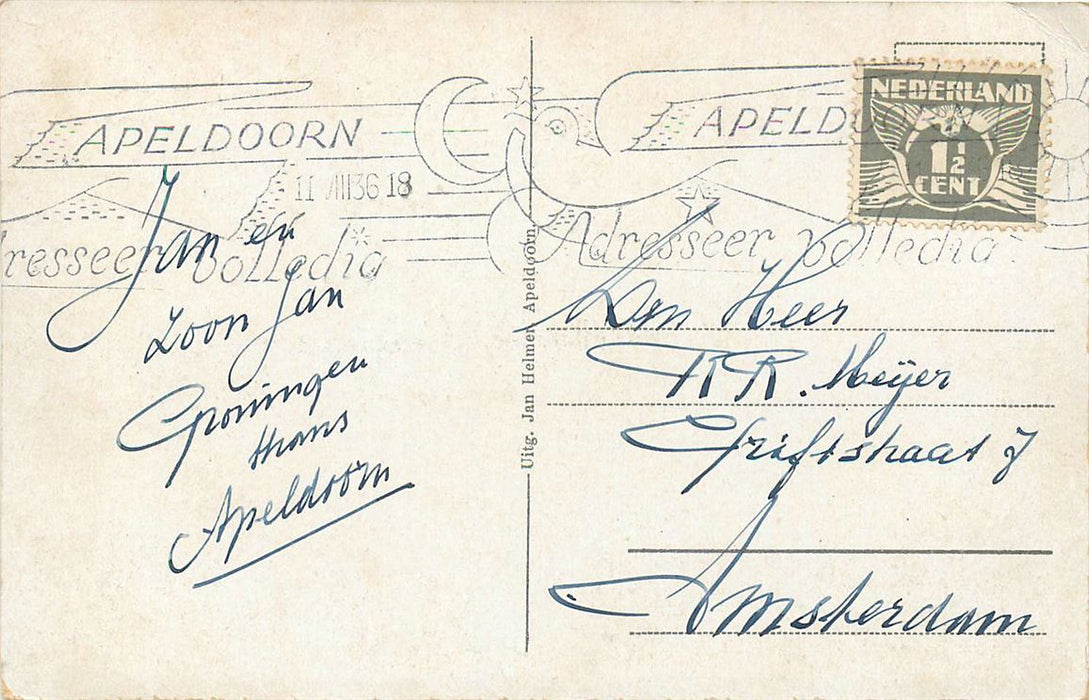 APELDOORN
11 VIII 36 18
resseer volledig
Jan en
zoon Jan
Groningen
thans
Apeldoorn
Uitg. Jan Helmer, Apeldoorn
NEDERLAND
1½
CENT
APELDOORN
Adresseer volledig
Den Heer
R. Meijer
Griftstraat 7
Amsterdam